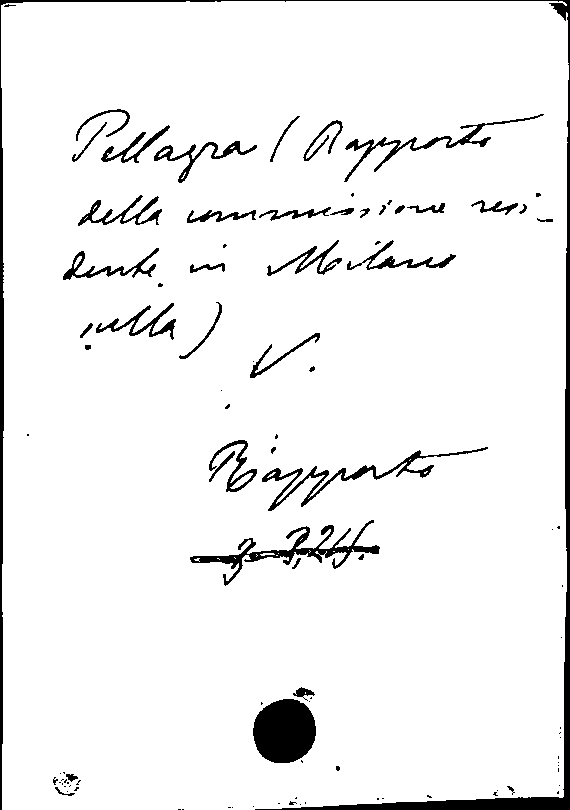 Pellagra ( Rapporto
della commissione resi-
dente in Milano
sulla )
V.
Rapporto